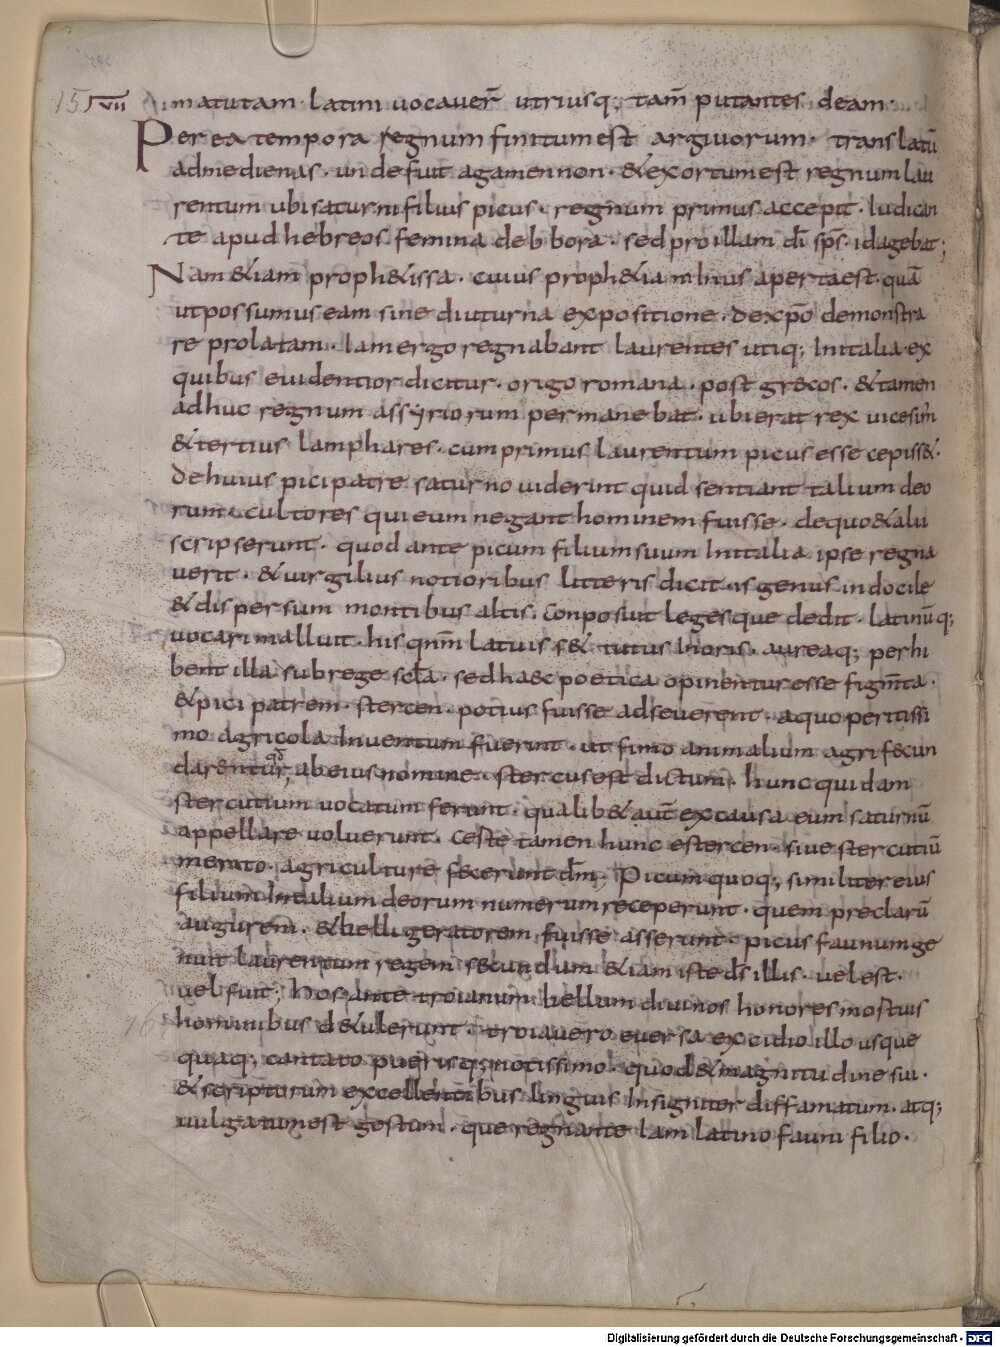 15 xvii matutam· latini uocauer̄ utriusq; tam̄ putantes deam·
Per ea tempora regnum finitum est argiuorum· translatū
ad medienas· unde fuit agamennon· & exortum est regnum lau
rentum ubi saturni filius picus· regnum primus accepit· Iudican
te apud hebreos femina debbora· sed pro illam dī sp̄s· id agebat;
Nam &iam proph&issa· cuius proph&ia minus aperta est· quā
ut possumus eam sine diuturna expositione· de xp̄o demonstra
re prolatam· Iam ergo regnabant laurentes utiq; In italia ex
quibus euidentior dicitur· origo romana· post grecos· & tamen
adhuc regnum assyriorum permanebat· ubi erat rex uicesim̄
& tertius lamphares· cum primus laurentum picus esse cepiss&·
De huius pici patre saturno uiderint quid sentiant talium deo
rum· cultores qui eum negant hominem fuisse· de quo & alii
scripserunt· quod ante picum filium suum In italia ipse regna
uerit· & uirgilius notioribus litteris dicit· is genus indocile
& dispersum montibus altis· conposuit legesque dedit· latinūq;
uocari malluit· his qnm̄ latuis s& tutus In oris· aureaq; perhi
bent illa sub rege scl̄a· sed haec poetica opinentur esse figm̄ta·
& pici patrem· stercen· potius fuisse adseuerent· a quo peritissi
mo agricola Inuentum fuerint· ut fimo animalium agri fecun
darentur, ab eius nomine· stercus est dictum· hunc quidam
stercutium uocatum ferunt· qualib& aut̄ ex causa eum saturnū
appellare uoluerunt· certe tamen hunc estercen· siue stercutiū
merito· agriculture fecerunt dm̄; Picum quoq; similiter eius
filium In talium deorum numerum receperunt· quem preclarū
augurem· & belligeratorem fuisse asserunt· picus faunum ge
nuit laurentum regem secundum &iam iste ds̄ illis· uel est·
uel fuit; hos ante troianum bellum diuinos honores mortuis
hominibus d&ulerunt· troia uero euersa excidio illo usque
quaq; cantato puerisq; notissimo· quod & magnitudine sui·
& scriptorum excellentibus linguis Insigniter diffamatum· atq;
uulgatum est gestum· que regnante Iam latino fauni filio·
Digitalisierung gefördert durch die Deutsche Forschungsgemeinschaft - DFG